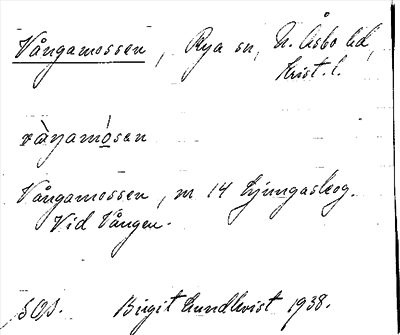 Vångamossen, Rya sn, N. Åsbo hd,
Krist. l.
våŋamósen
Vångamossen, m 14 Ljungaskog.
Vid Vången.
SOS. Birgit Lundkvist 1938.